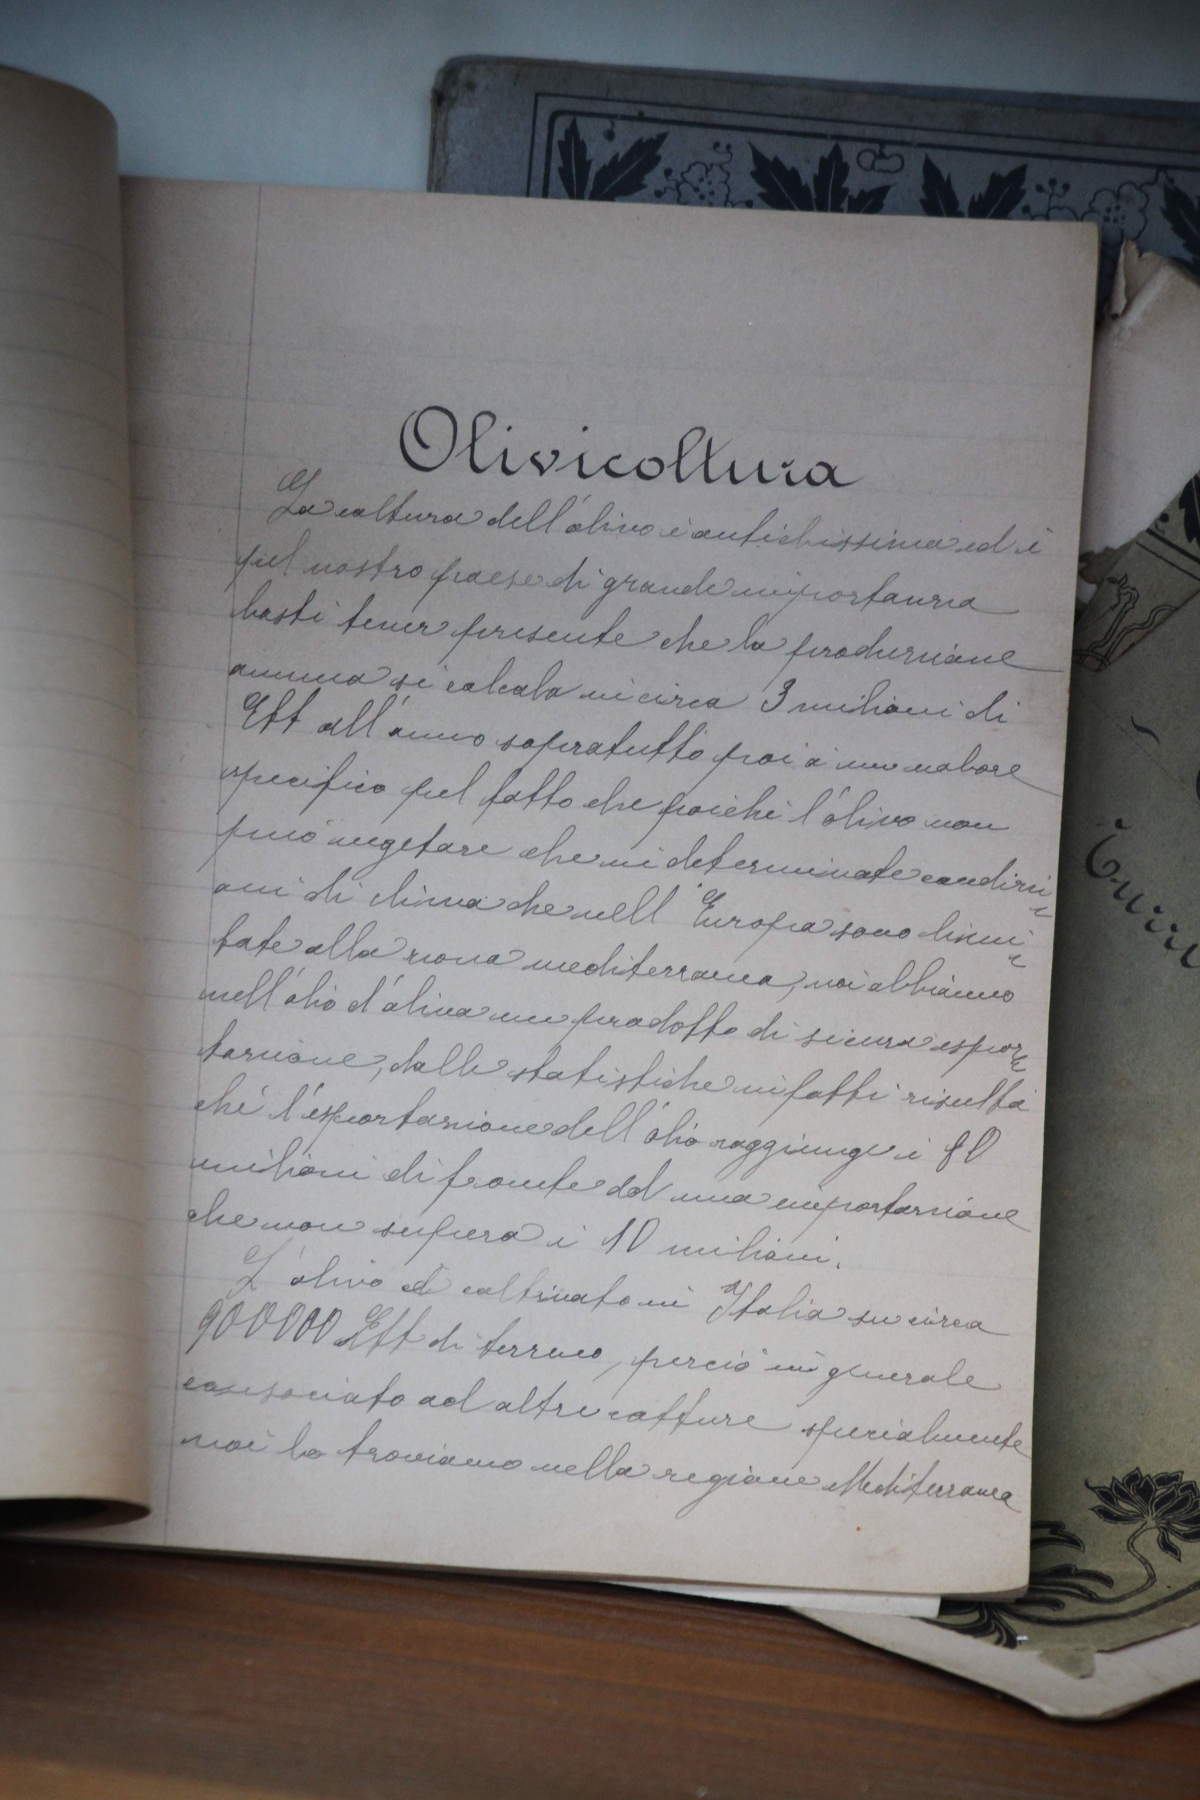 Olivicoltura
La coltura dell'olivo è antichissima ed è
pel nostro paese di grande importanza
basti tener presente che la produzione
annua si calcola in circa 3 milioni di
Ett all'anno sopratutto poi à un valore
specifico pel fatto che poichè l'olivo non
può vegetare che in determinate condizi
oni di clima che nell'Europa sono limi
tate alla zona mediterranea, noi abbiamo
nell'olio d'oliva un prodotto di sicura espor
tazione, dalle statistiche infatti risulta
chè l'esportazione dell'olio raggiunge i 80
milioni di fronte ad una importazione
che non supera i 10 milioni.
L'olivo è coltivato in Italia su circa
900000 Ett di terreno, perciò in generale
consociato ad altre colture specialmente
noi lo troviamo nella regione Mediterranea